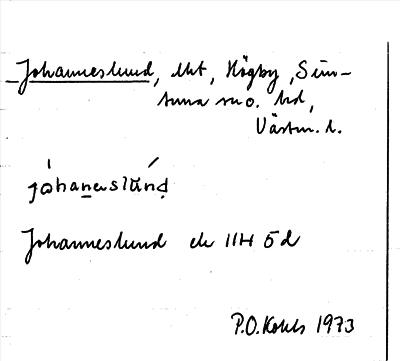 Johanneslund, lht, Högby, Sim-
tuna sn o. hd,
Västm. l.
Johanneslund ek 11H 5d
P.O. Kohls 1973